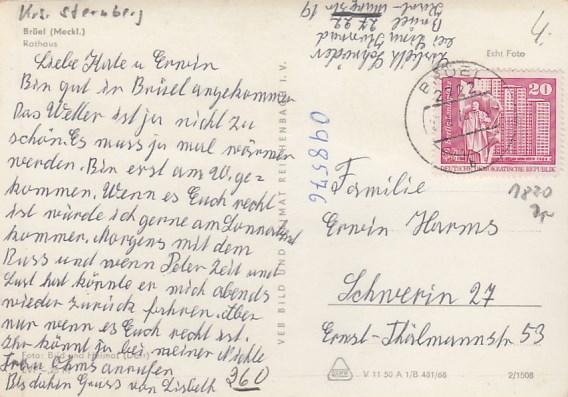 Krs. Sternberg
Brüel (Meckl.)
Rathaus
Liebe Kate u Erwin
Bin gut in Brüel angekommen
Das Wetter ist ja nicht zu
schön. Es muss ja mal wärmer
werden. Bin erst am 20. ge-
kommen. Wenn es Euch recht
ist würde ich gerne am Sonnabend
kommen, Morgens mit dem
Buss und wenn Peter Zeit und
Lust hat könnte er mich abends
wieder zurück fahren. Aber
nur wenn es Euch recht ist.
Ihr könnt ja bei meiner Nichte
Frau Ohms anrufen
Foto: Bild und Heimat
360
Bis dahin Gruss von Lisbeth
VEB BILD UND HEIMAT REICHENBACH I. V.
Lisbeth Schneider
Brüel 2722
19
Echt Foto
4.
098576
BRÜEL
2722
20
DEUTSCHE DEMOKRATISCHE REPUBLIK
1820
Familie
Erwin Harms
Schwerin 27
Ernst-Thälmannstr 53
V 11 50 A 1/B 481/68
2/1508